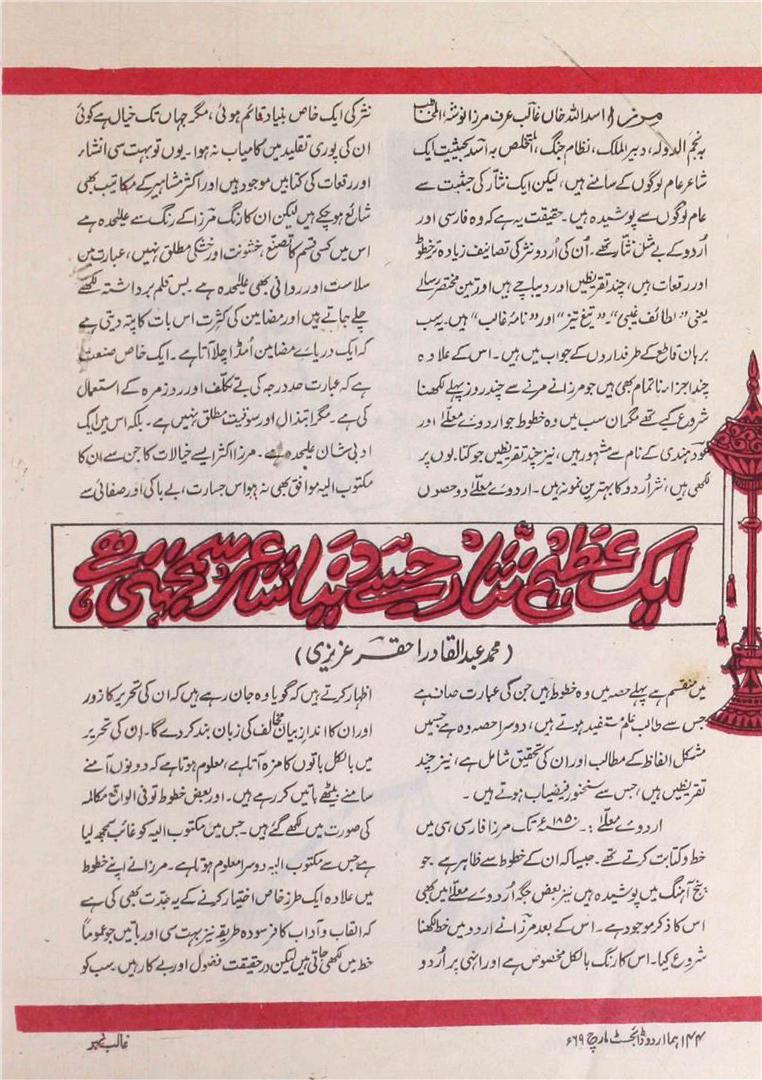 مرزا اسد اللہ خاں غالب عرف مرزا نوشہ، المخاطب
بہ نجم الدولہ، دبیر الملک، نظام جنگ، المتخلص بہ اسد بحیثیت ایک
شاعر عام لوگوں کے سامنے ہیں، لیکن ایک نثار کی حیثیت سے
عام لوگوں سے پوشیدہ ہیں۔ حقیقت یہ ہے کہ وہ فارسی اور
اُردو کے بے مثل نثار تھے۔ اُن کی اُردو نثر کی تصانیف زیادہ تر خطوط
اور رقعات ہیں، چند تقریظیں اور دیباچے ہیں اور تین مختصر رسالے
یعنی "لطائف غیبی"۔ "تیغ تیز" اور "نامۂ غالب" ہیں۔ یہ سب
برہان قاطع کے طرفداروں کے جواب میں ہیں۔ اس کے علاوہ
چند اجزا ناتمام بھی ہیں جو مرزا نے مرنے سے چند روز پہلے لکھنا
شروع کیے تھے مگر ان سب میں وہ خطوط جو اردوئے معلّٰے اور
عود ہندی کے نام سے مشہور ہیں، نیز چند تقریظیں جو کتابوں پر
لکھی ہیں، نثر اُردو کا بہترین نمونہ ہیں۔ اردوئے معلّٰے دو حصوں
نثر کی ایک خاص بنیاد قائم ہوئی، مگر جہاں تک خیال ہے کوئی
ان کی پوری تقلید میں کامیاب نہ ہوا۔ یوں تو بہت سی انشاء
اور رقعات کی کتابیں موجود ہیں اور اکثر مشاہیر کے مکاتیب بھی
شائع ہو چکے ہیں لیکن ان کا رنگ مرزا کے رنگ سے علیحدہ ہے
اس میں کسی قسم کا تصنع، خشونت اور خشکی مطلق نہیں، عبارت میں
سلاست اور روانی بھی علیحدہ ہے۔ بس قلم برداشتہ لکھے
چلے جاتے ہیں اور مضامین کی کثرت اس بات کا پتہ دیتی ہے
کہ ایک دریائے مضامین اُمڈا چلا آتا ہے۔ ایک خاص صنعت
ہے کہ عبارت حد درجہ کی بے تکلف اور روزمرہ کے استعمال
کی ہے۔ مگر ابتذال اور سوقیت مطلق نہیں ہے۔ بلکہ اس میں ایک
ادبی شان علیحدہ ہے۔ مرزا اکثر ایسے خیالات کا جن سے ان کا
مکتوب الیہ موافق بھی نہ ہو اس جسارت، بے باکی اور صفائی سے
ایک عظیم نثّار جسے دنیا شاعر سمجھتی ہے
(محمد عبدالقادر احقر عزیزی)
میں منقسم ہے پہلے حصہ میں وہ خطوط ہیں جن کی عبارت صاف ہے
جس سے طالب علم مستفید ہوتے ہیں، دوسرا حصہ وہ ہے جسمیں
مشکل الفاظ کے مطالب اور ان کی تحقیق شامل ہے، نیز چند
تقریظیں ہیں، جس سے سخنور فیضیاب ہوتے ہیں۔
اردوئے معلّٰے :۔ ۱۸۵۰ء تک مرزا فارسی ہی میں
خط و کتابت کرتے تھے۔ جیسا کہ ان کے خطوط سے ظاہر ہے۔ جو
پنج آہنگ میں پوشیدہ ہیں نیز بعض جگہ اُردوئے معلّٰے میں بھی
اس کا ذکر موجود ہے۔ اس کے بعد مرزا نے اردو میں خط لکھنا
شروع کیا۔ اس کا رنگ بالکل مخصوص ہے اور انہی پر اُردو
اظہار کرتے ہیں کہ گویا وہ جان رہے ہیں کہ ان کی تحریر کا زور
اور ان کا انداز بیان مخالف کی زبان بند کر دے گا۔ ان کی تحریر
میں بالکل باتوں کا مزہ آتا ہے، معلوم ہوتا ہے کہ دونوں آمنے
سامنے بیٹھے باتیں کر رہے ہیں۔ اور بعض خطوط تو فی الواقع مکالمہ
کی صورت میں لکھے گئے ہیں۔ جس میں مکتوب الیہ کو غائب سمجھ لیا
ہے جس سے مکتوب الیہ دوسرا معلوم ہوتا ہے۔ مرزا نے اپنے خطوط
میں علاوہ ایک طرز خاص اختیار کرنے کے یہ جدّت بھی کی ہے
کہ القاب و آداب کا فرسودہ طریقہ نیز بہت سی اور باتیں جو عموماً
خط میں لکھی جاتی ہیں لیکن درحقیقت فضول اور بے کار ہیں۔ سب کو
۱۴۴ ہما اردو ڈائجسٹ مارچ ۶۹ء
غالب نمبر